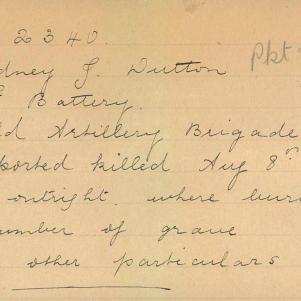 2340.
Pkt
dney J. Dutton
Battery.
ld Artillery Brigade
ported killed Aug 8th
outright. where buri
number of grave
other particulars